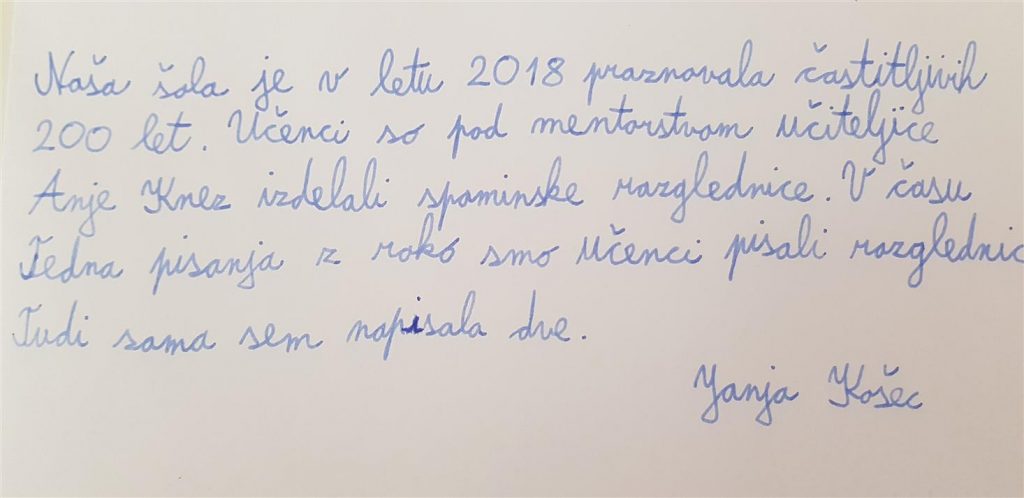 Naša šola je v letu 2018 praznovala častitljivih
200 let. Učenci so pod mentorstvom učiteljice
Anje Knez izdelali spominske razglednice. V času
Tedna pisanja z roko smo učenci pisali razglednic
Tudi sama sem napisala dve.
Janja Košec